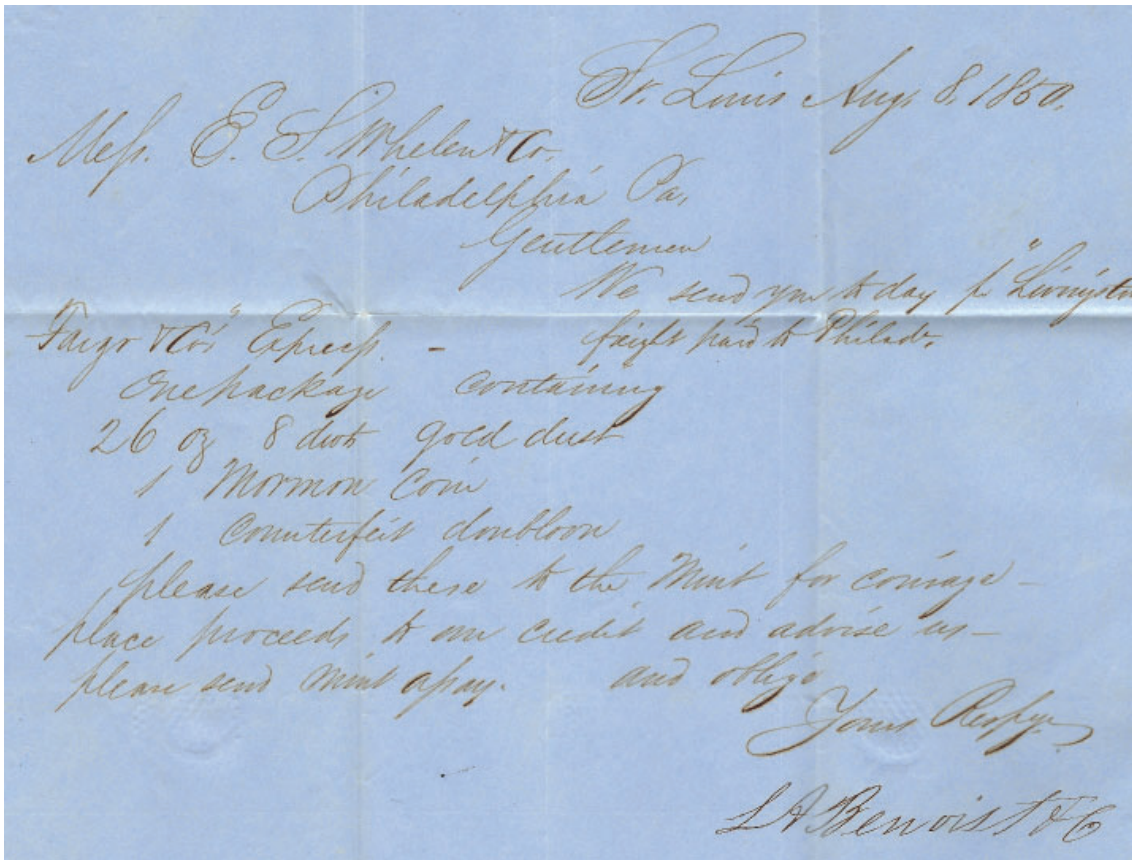 St. Louis Aug. 8. 1850.
Mess. E. S. Whelen & Co.
Philadelphia Pa.
Gentlemen
We send you to day pr "Livingston
Fargo & Co's" Express. - freight paid to Philada.
One package containing
26 oz 8 dwts gold dust
1 Mormon Coin
1 Counterfeit doubloon
please send these to the Mint for coinage -
place proceeds to our credit and advise us -
please send Mint assay. and oblige
Yours Respy.
L A Benoist & Co